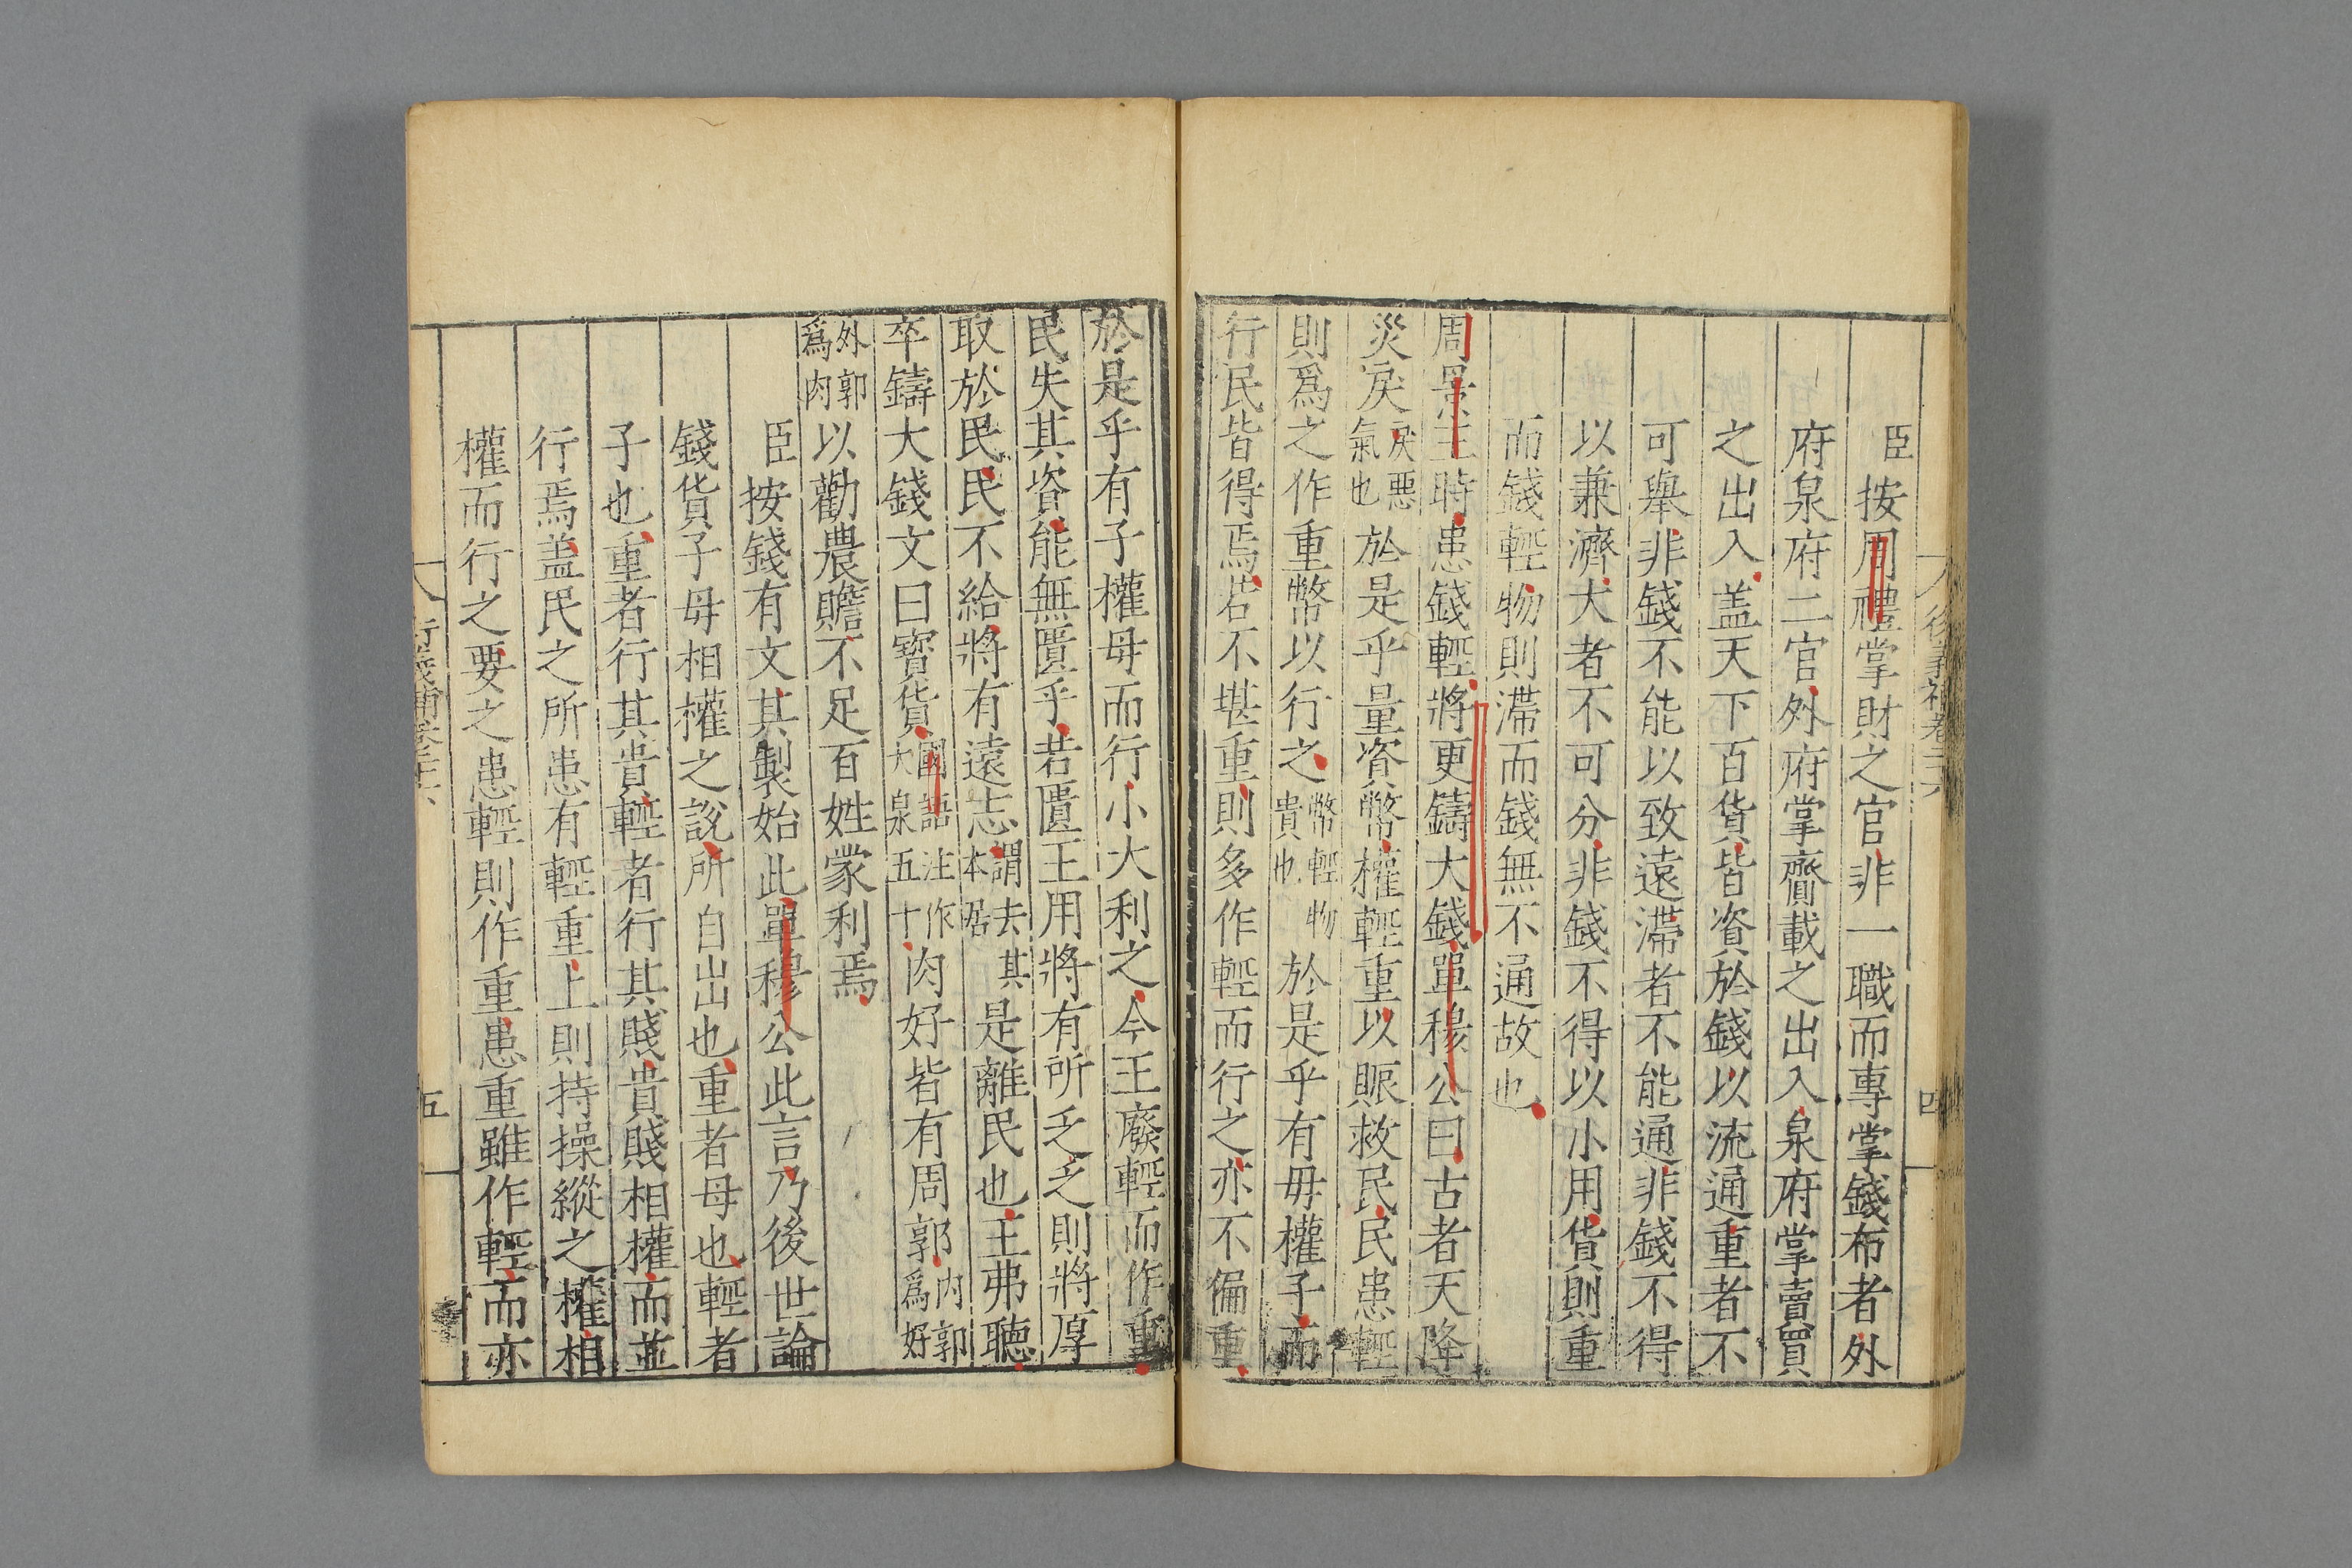 臣按周禮掌財之官非一職而專掌錢布者外
府泉府二官外府掌齎載之出入泉府掌賣買
之出入盖天下百貨皆資於錢以流通重者不
可舉非錢不能以致遠滯者不能通非錢不得
以兼濟大者不可分非錢不得以小用貨則重
而錢輕物則滯而錢無不通故也
周景王時患錢輕將更鑄大錢單穆公曰古者天降
災戾戾惡氣也於是乎量資幣權輕重以賑救民民患輕
則爲之作重幣以行之幣輕物貴也於是乎有毋權子而
行民皆得焉若不堪重則多作輕而行之亦不偏重
於是乎有子權母而行小大利之今王廢輕而作重
民失其資能無匱乎若匱王用將有所乏乏則將厚
取於民民不給將有遠志謂去其本居是離民也王弗聽
卒鑄大錢文曰寳貨國語注作大泉五十肉好皆有周郭内郭爲好
外郭爲肉以勸農贍不足百姓蒙利焉
臣按錢有文其製始此單穆公此言乃後世論
錢貨子母相權之說所自出也重者母也輕者
子也重者行其貴輕者行其賤貴賤相權而並
行焉盖民之所患有輕重上則持操縱之權相
權而行之要之患輕則作重患重雖作輕而亦
四
五